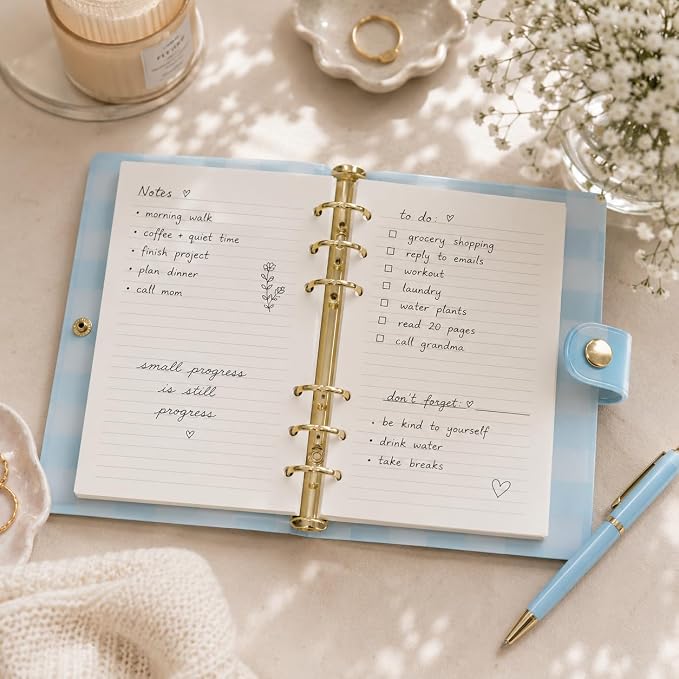 Notes ♡
• morning walk
• coffee + quiet time
• finish project
• plan dinner
• call mom
small progress
is still
progress
♡
to do: ♡
☐ grocery shopping
☐ reply to emails
☐ workout
☐ laundry
☐ water plants
☐ read 20 pages
☐ call grandma
don't forget ♡
• be kind to yourself
• drink water
• take breaks
♡